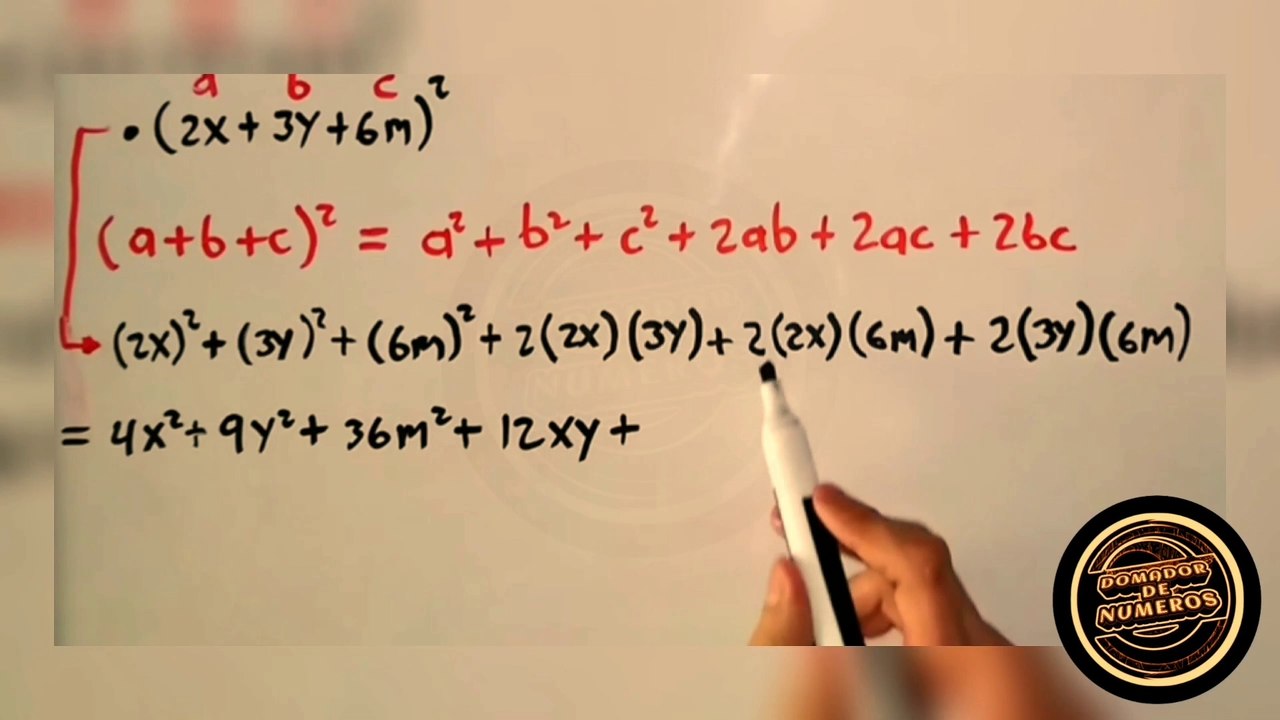 a b c
• (2x + 3y + 6m)²
(a+b+c)² = a² + b² + c² + 2ab + 2ac + 2bc
(2x)² + (3y)² + (6m)² + 2(2x)(3y) + 2(2x)(6m) + 2(3y)(6m)
= 4x² + 9y² + 36m² + 12xy +
DOMADOR
DE
NUMEROS